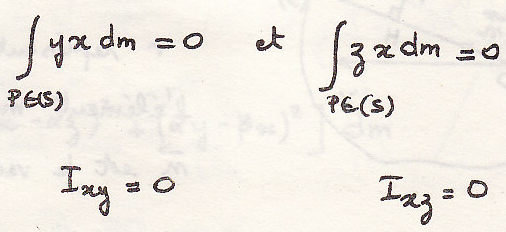 ∫_{P∈(S)} yx dm = 0 et ∫_{P∈(S)} zx dm = 0
I_{xy} = 0 I_{xz} = 0